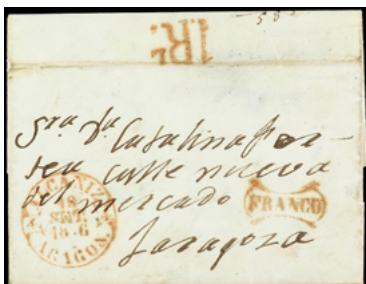 1R.
Sra Da Catalina
calle nueva
del mercado
Zaragoza
ALCAÑIZ
18
SET
ARAGON.
FRANCO